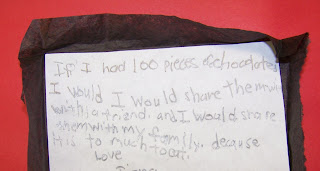 If I had 100 pieces of chocolates
I would I would share them
with a friend. and I would share
them with my family. because
It is to much to eat.
Love